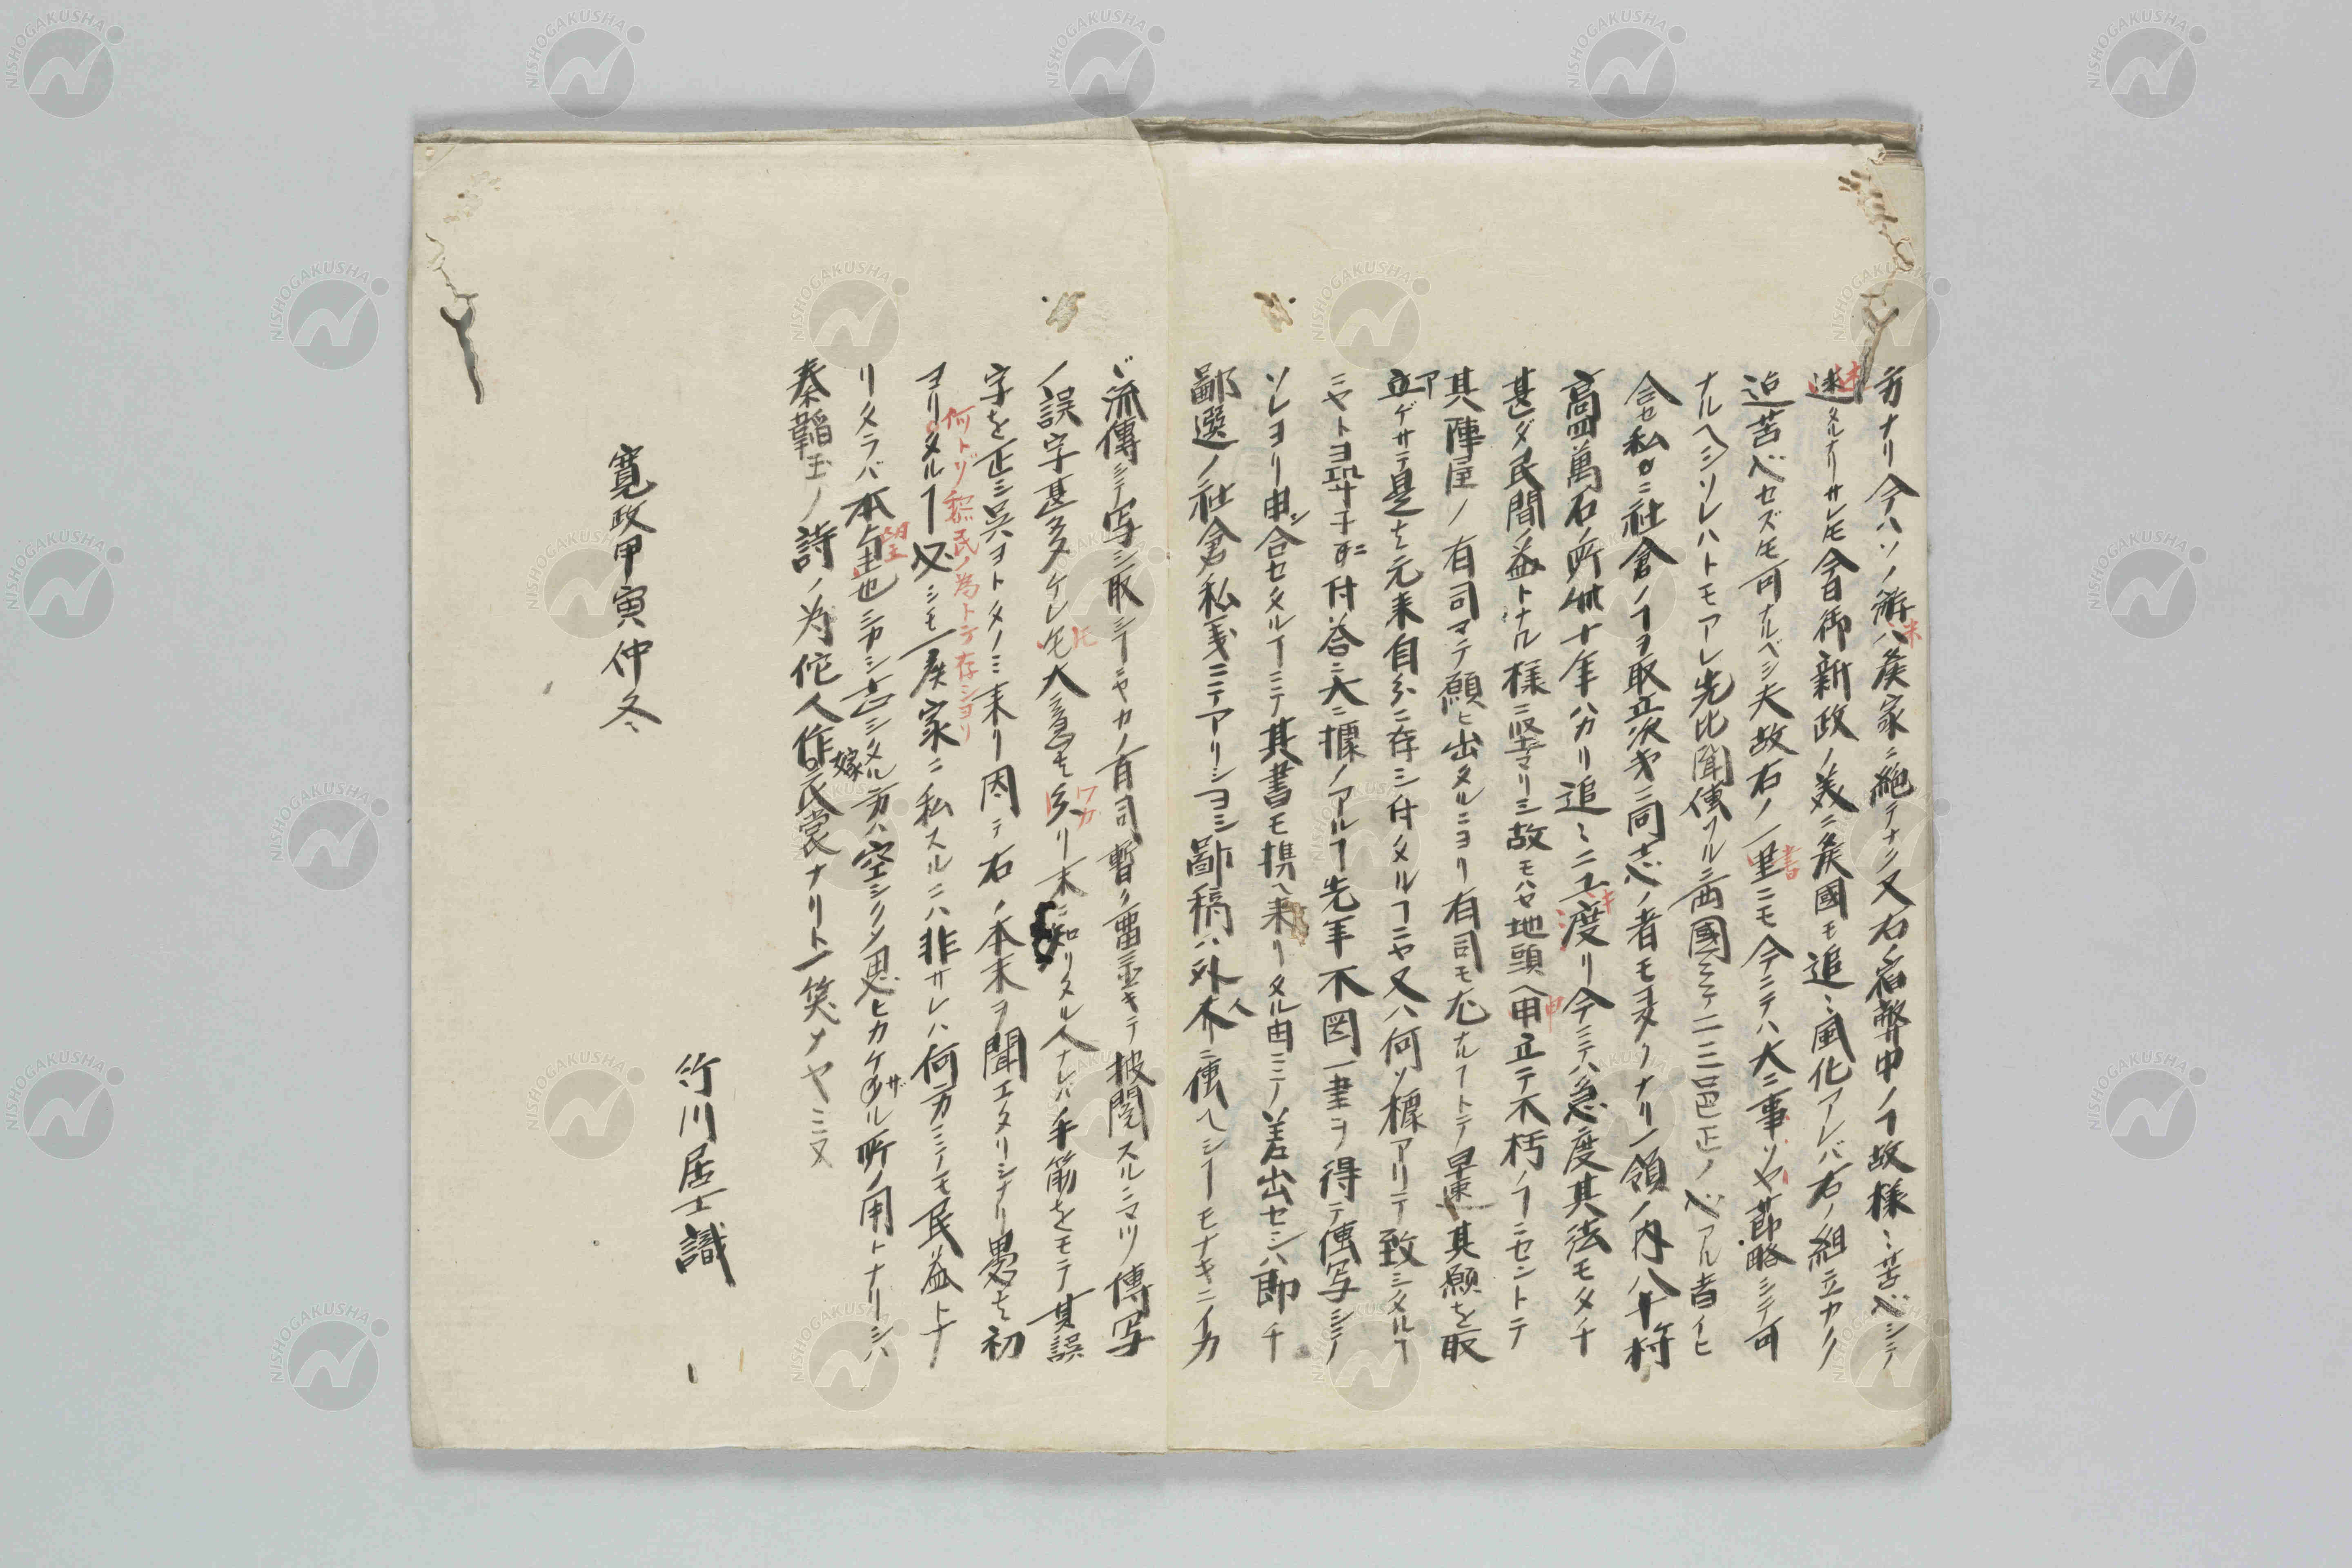 方ナリ今ハソノ弊ハ矦家ニ絶テナシ又右ノ宿弊中ノヿ故様〻苦心シテ
述タルナリサレ𪜈今日御新政ノ美ニ矦國モ追〻風化アレバ右ノ組立カク
迠苦心セズ𪜈可ナルベシ夫故右ノ一里ニモ今ニテハ大ニ事ソヤ節略シテ可
ナルヘシソレハトモアレ先比聞傳フルニ両國ミテ二三邑正ノ心アル者イヒ
合セ私カニ社倉ノヿヲ取立次才ニ同志ノ者モヲヽクナリ一領ノ内八十村
高四萬石ノ所卅十年ハカリ追〻ニ工度リ今ミテハ急度其法モタチ
甚ダ民間ノ益トナル様ニ堅マリシ故モハヤ地頭ヘ申立テ不朽ノヿニセントテ
其陣屋ノ有司マテ願ヒ出タルニヨリ有司モ尤ナルヿトテ早束其願を取
立アゲサテ是を元来自分ニ存シ付タルヿニヤ又ハ何ソ標アリテ致シタルヿ
ニヤトヨ尋子ニ付答ニ大ニ標ノアルヿ先年不図一書ヲ得テ傳写シテノ
ソレヨリ申シ合セタルヿミテ其書モ携ヘ来リタル由ミテノ差出セシハ即チ
鄙選ノ社倉私議ニテアリシヨシ鄙稿ハ外人ニ傳ヘシヿモナキニイカ
ゞ流傳シテ写シ取シヿニヤカノ有司暫ク畱置キテ披閲スルニマツ傳写
ノ誤字甚多ケレ𪜈大意を分リ末ニ知リタル人ナレバ手筋をモテ其誤
字を正シ呉ヨトタノミ来リ因テ右ノ本末ヲ聞エタリシナリ愚を初
ヨリタルヿ必シモ一矦家ニ私スルニハ非サレハ何方ミテモ民益トナ
何トゾ黎民ノ為トテ存シヨリ
リタラバ本望也シカシ志シタル方ハ空シクメ思ヒカケザル所ノ用トナリシハ
秦韜玉ノ詩ノ為佗人作嫁衣裳ナリト一笑ナヤミヌ
寛政甲寅仲冬
竹川居士識